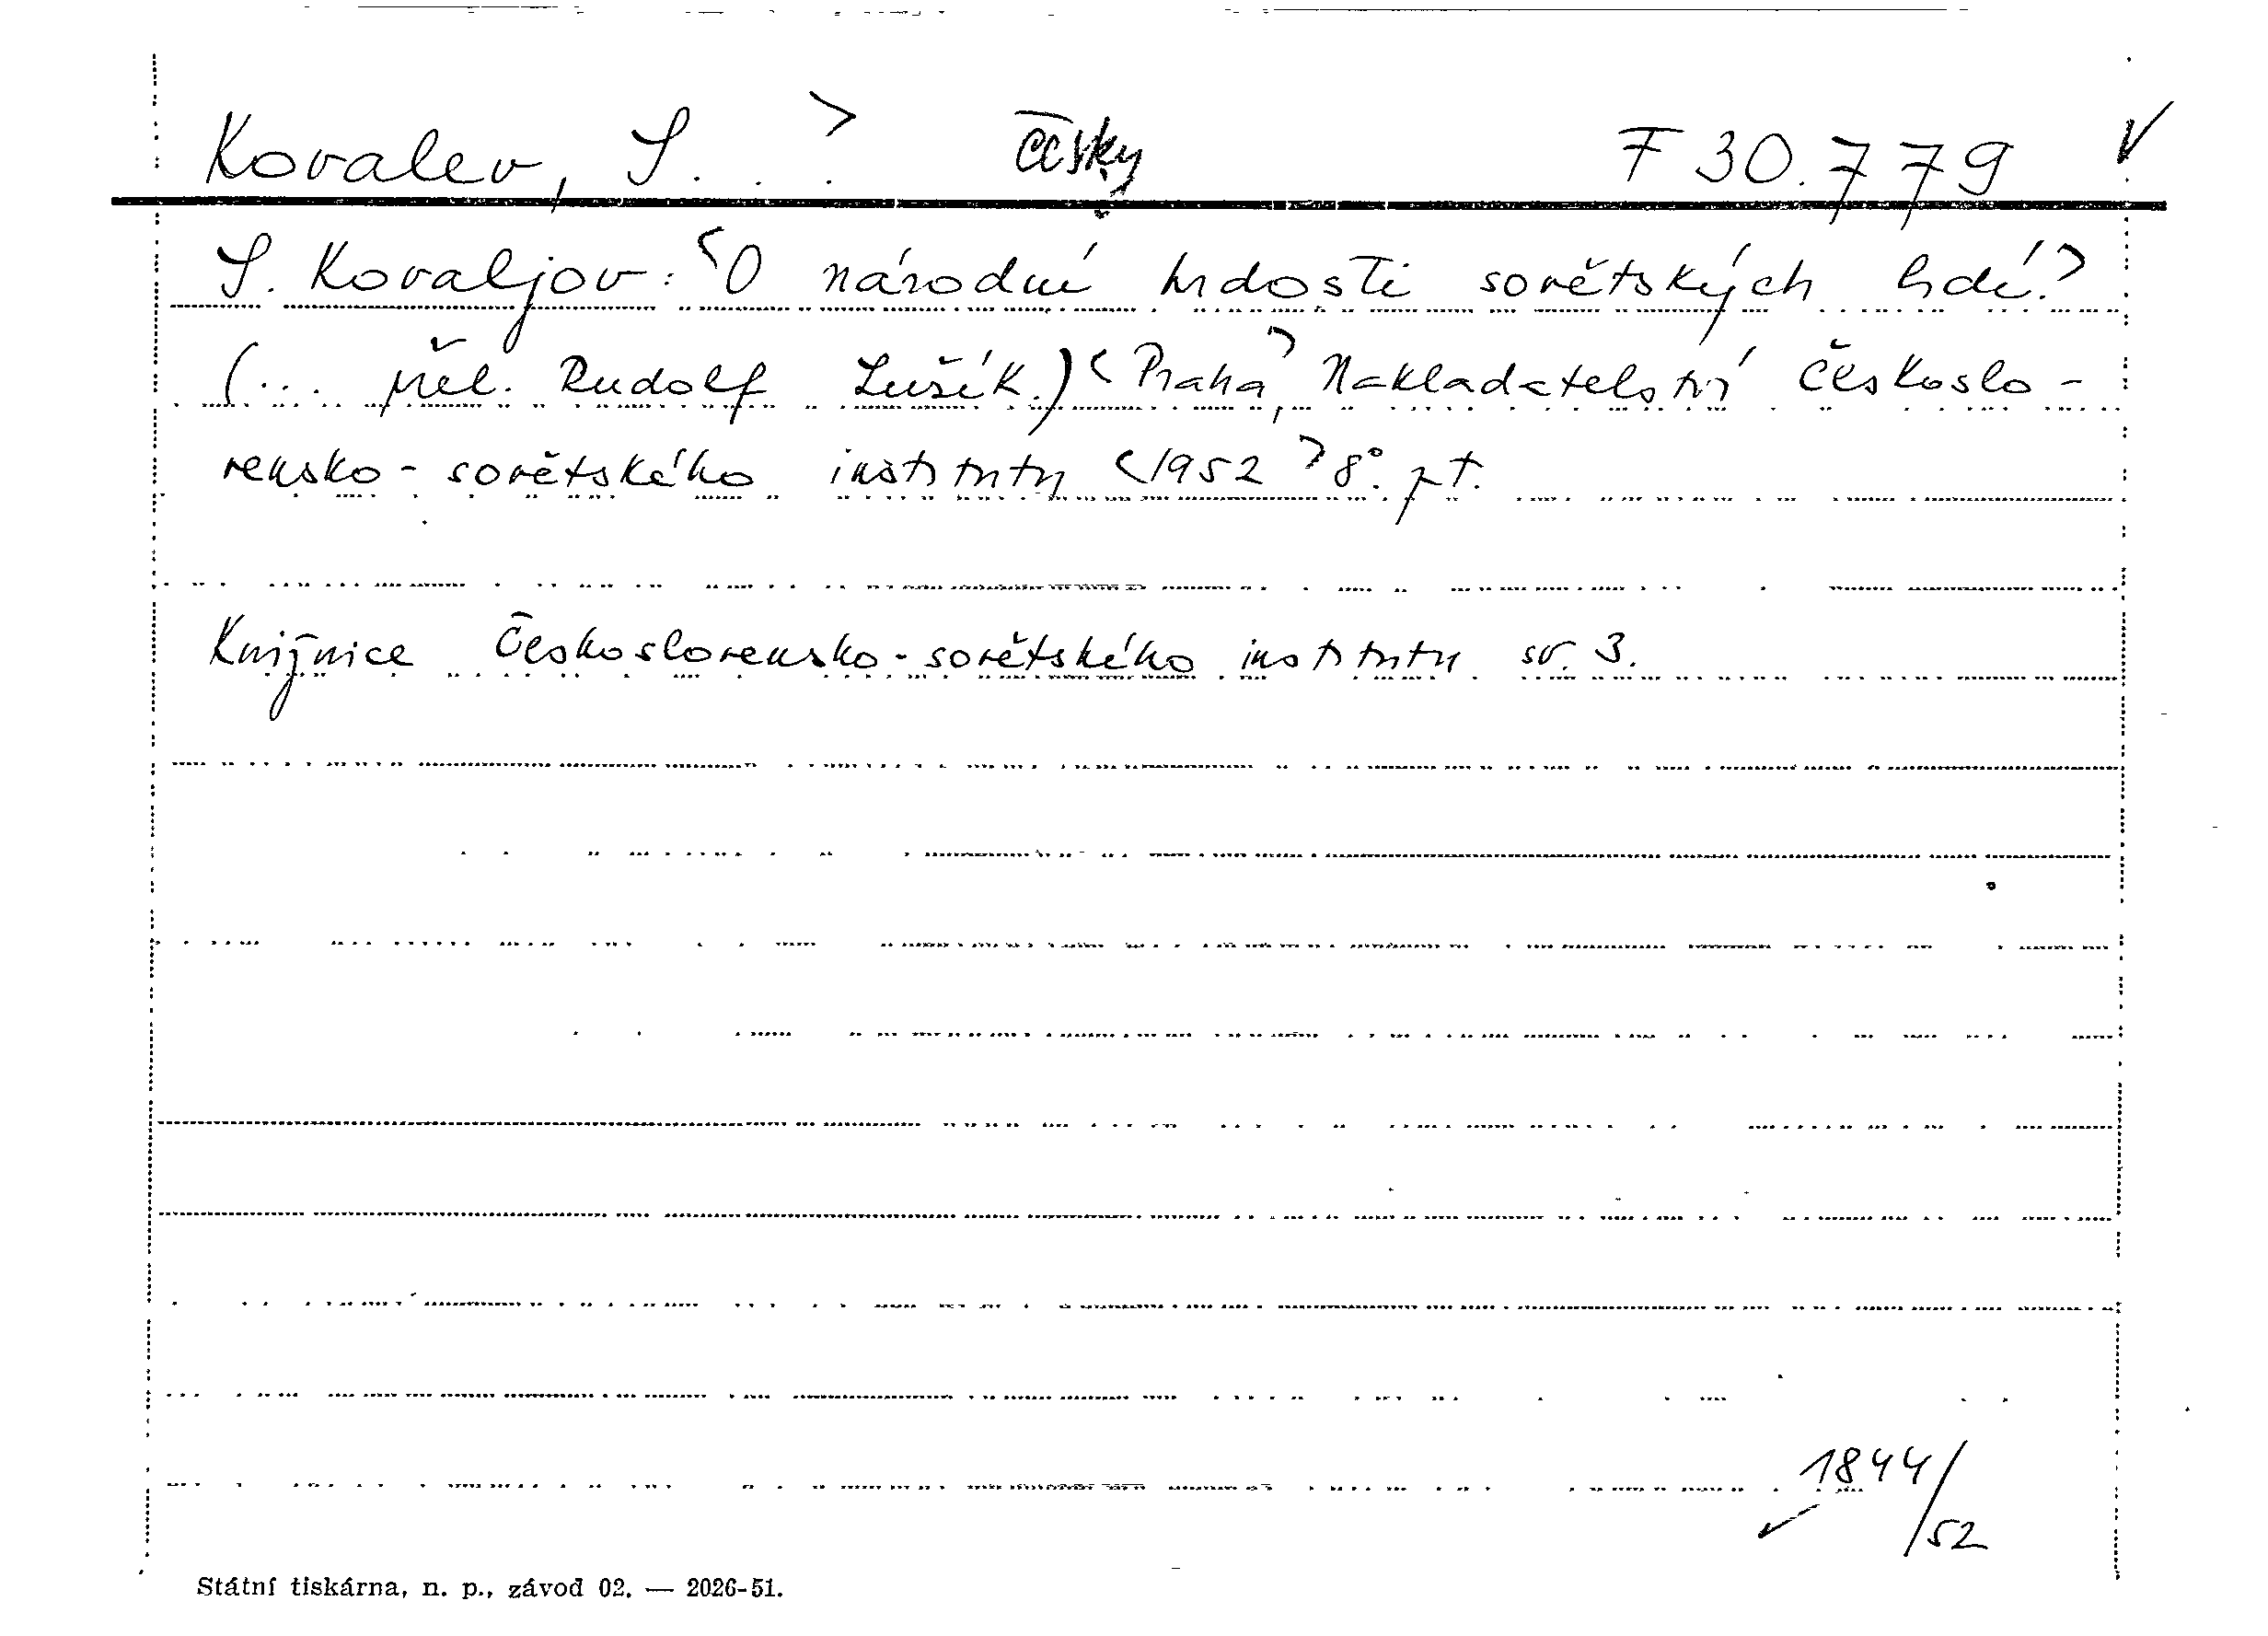 Kovalev, S. . > česky F 30.779 ✓
S. Kovaljov: <O národní hrdosti sovětských lidí.>
(... přel. Rudolf Lušík.) <Praha,> Nakladatelství Českoslo-
vensko-sovětského institutu <1952> 8°. pt.
Knižnice Československo-sovětského institutu sv. 3.
1844/
✓ /52
Státní tiskárna, n. p., závod 02. — 2026-51.